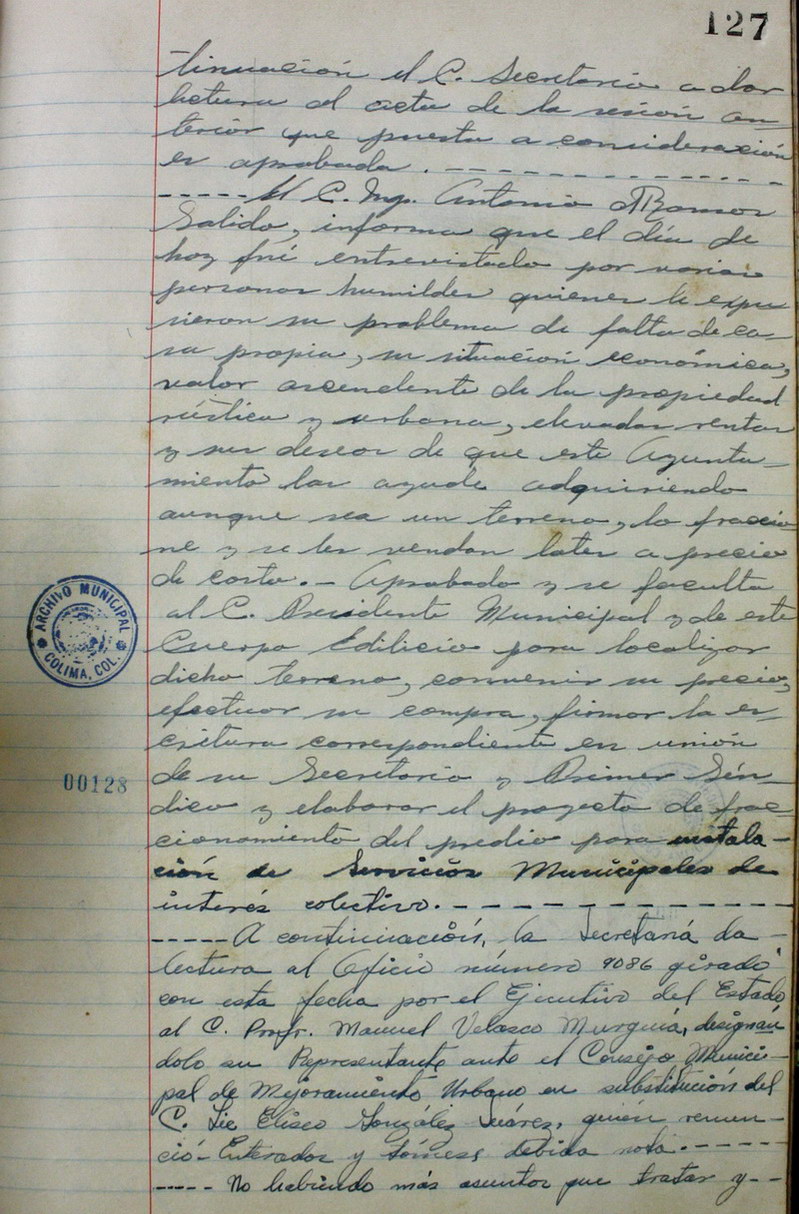 127
tinuación el C. Secretario a dar
lectura al acta de la sesión an-
terior que puesta a consideración
es aprobada. - - - - - - - - - - - - -
- - - - - El C. Ing. Antonio
Salido, informa que el día de
hoy fué entrevistado por varias
personas humildes quienes le expu
sieron su problema de falta de ca-
sa propia, su situación económica,
valor ascendente de la propiedad
rústica y urbana, elevadas rentas
y sus deseos de que este Ayunta-
miento las ayude adquiriendo
aunque sea un terreno, lo fraccio
ne y se les vendan lotes a precio
de costo. - Aprobado y se faculta
al C. Presidente Municipal y de este
Cuerpo Edilicio para localizar
dicho terreno, convenir su precio,
efectuar su compra, firmar la es-
critura correspondiente en unión
de su Secretario y Primer Sín-
dico y elaborar el proyecto de frac-
cionamiento del predio para instala-
ción de Servicios Municipales de
interés colectivo. - - - - - - - - - - - -
- - - - - A continuación, la Secretaría da
lectura al Oficio número 9086 girado
con esta fecha por el Ejecutivo del Estado
al C. Profr. Manuel Velasco Murguía, designán
dolo su Representante ante el Consejo Munici-
pal de Mejoramiento Urbano en substitución del
C. Lic Eliseo González Juárez, quien renun-
ció - Enterados y tómese debida nota. - - - - -
- - - - - No habiendo más asuntos que tratar y - -
ARCHIVO MUNICIPAL
COLIMA, COL.
00128